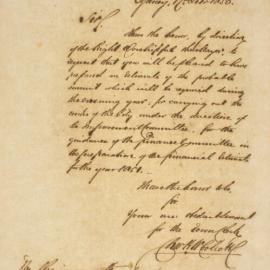 Sydney, 17 Decr 1850.
Sir,
I have the honor, by direction
of the Right Worshipful the Mayor, to
request that you will be pleased to have
prepared an Estimate of the probable
amount which will be required during
the ensuing year, for carrying out the
works of the City under the direction of
the Improvement Committee, for the
guidance of the Finance Committee in
the preparation of the financial Estimate
for the year 1851.
I have the honor to be
Sir
Your obedient Servant
for the Town Clerk